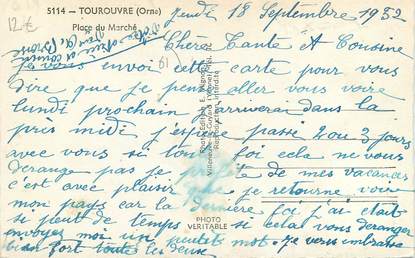 5114 — TOUROUVRE (Orne)
Place du Marché
12€
Jeudi 18 Septembre 1932
Chère Tante et Cousine
je vous envoi cette carte pour vous
dire que je pense aller vous voire
lundi prochain j'arriverai dans la
près midi j'espère passé 2 ou 3 jours
avec vous si toute foi cela ne vous
derange pas je de mes vacances
c'est avec plaisir je retourne voire
mon pays car la dernière foi j'ai etait
si peut de temps si cela vous deranger
envoyez moi un petits mot. Je vous embrasse
bien fort toute les deux
PHOTO
VERITABLE
Reproduction interdite